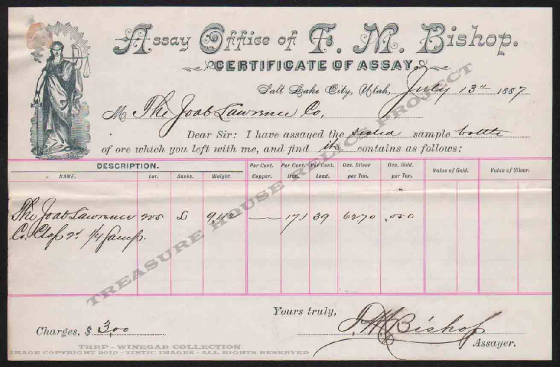 Assay Office of F. M. Bishop.
CERTIFICATE OF ASSAY.
Salt Lake City, Utah, July 13th 1887
M The Joab Lawrence Co,
Dear Sir: I have assayed the sealed sample bottle
of ore which you left with me, and find its contains as follows:
DESCRIPTION.
NAME. Lot. Sacks. Weight. Per Cent. Copper. Per Cent. Iron. Per Cent. Lead. Ozs. Silver per Ton. Ozs. Gold per Ton. Value of Gold. Value of Silver.
The Joab Lawrence 39
Co.
TREASURE HOUSE RELIC PROJECT
Yours truly,
Charges, $ 3.00
F M Bishop
Assayer.
THRP - WINEGAR COLLECTION
IMAGE COPYRIGHT 2010 - TINTIC IMAGES - ALL RIGHTS RESERVED